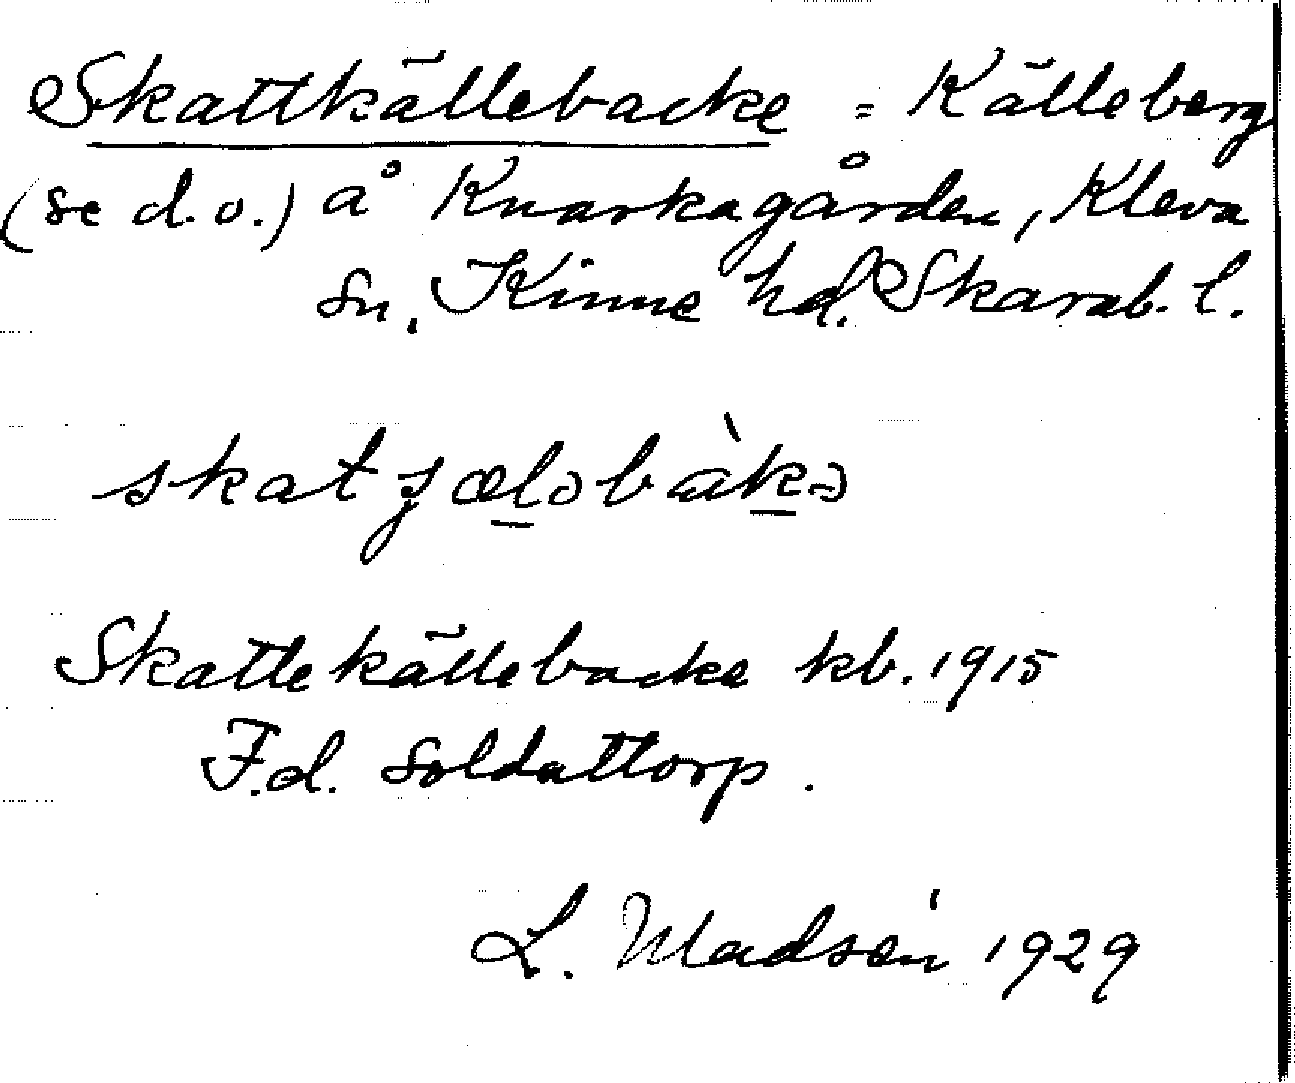 Skattkällebacke = Källeberg
(se d.o.) å Knarkagården, Kleva
sn. Kinne hd. Skarab. l.
skatʃæləbàkə
Skattekällebacke kb. 1915
F.d. soldattorp.
L. Madsén 1929